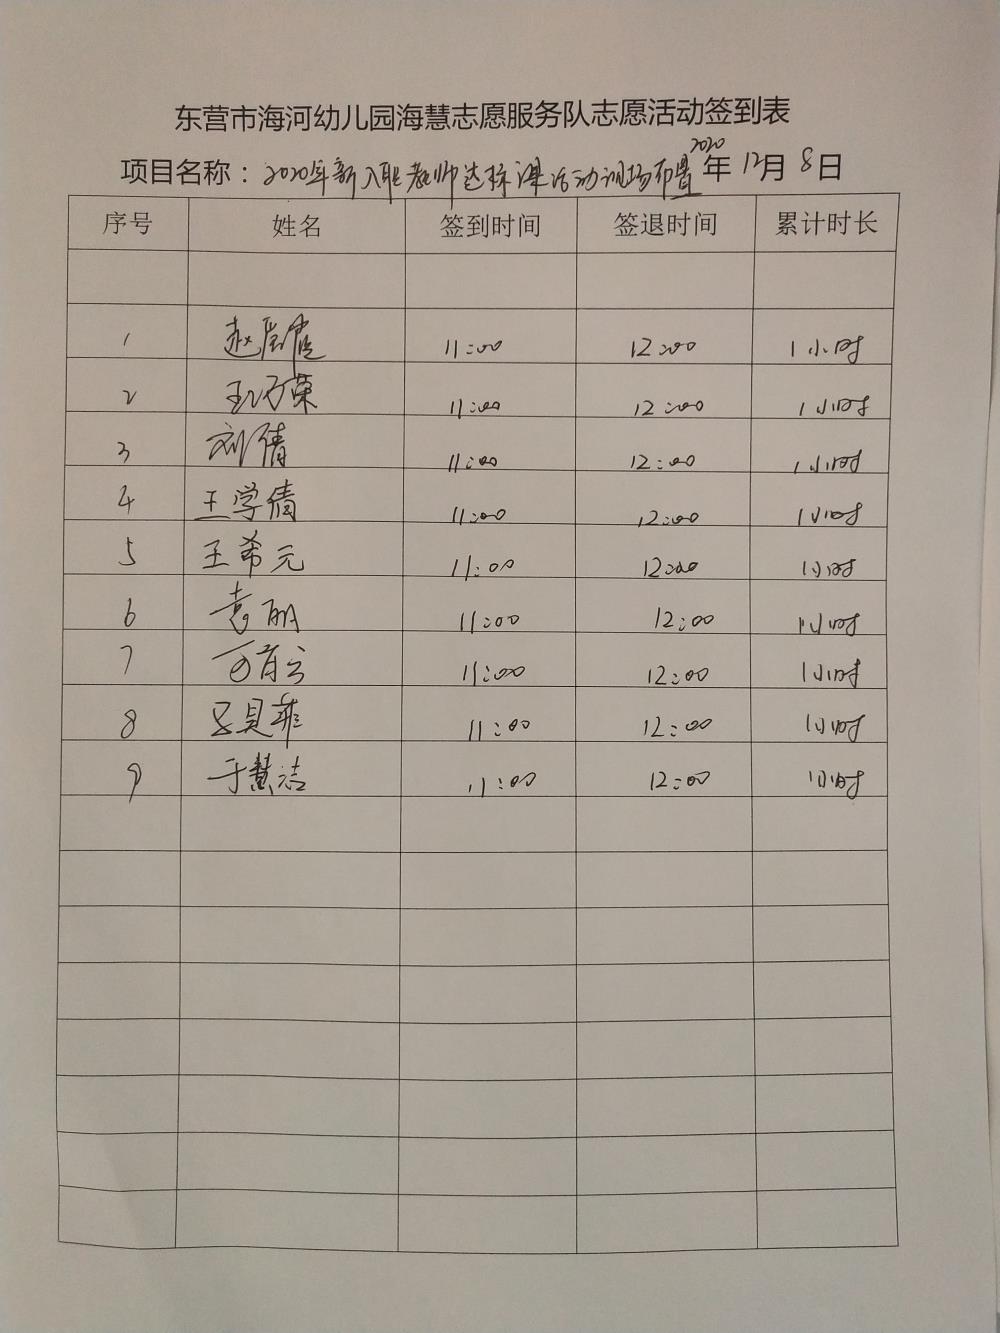 东营市海河幼儿园海慧志愿服务队志愿活动签到表
项目名称：2020年新入职教师达标课活动现场布置 2020年12月8日
序号 姓名 签到时间 签退时间 累计时长
1 赵 11:00 12:00 1小时
2 荣 11:00 12:00 1小时
3 刘倩 11:00 12:00 1小时
4 王学倩 11:00 12:00 1小时
5 王希元 11:00 12:00 1小时
6 袁丽 11:00 12:00 1小时
7 11:00 12:00 1小时
8 11:00 12:00 1小时
9 于慧洁 11:00 12:00 1小时